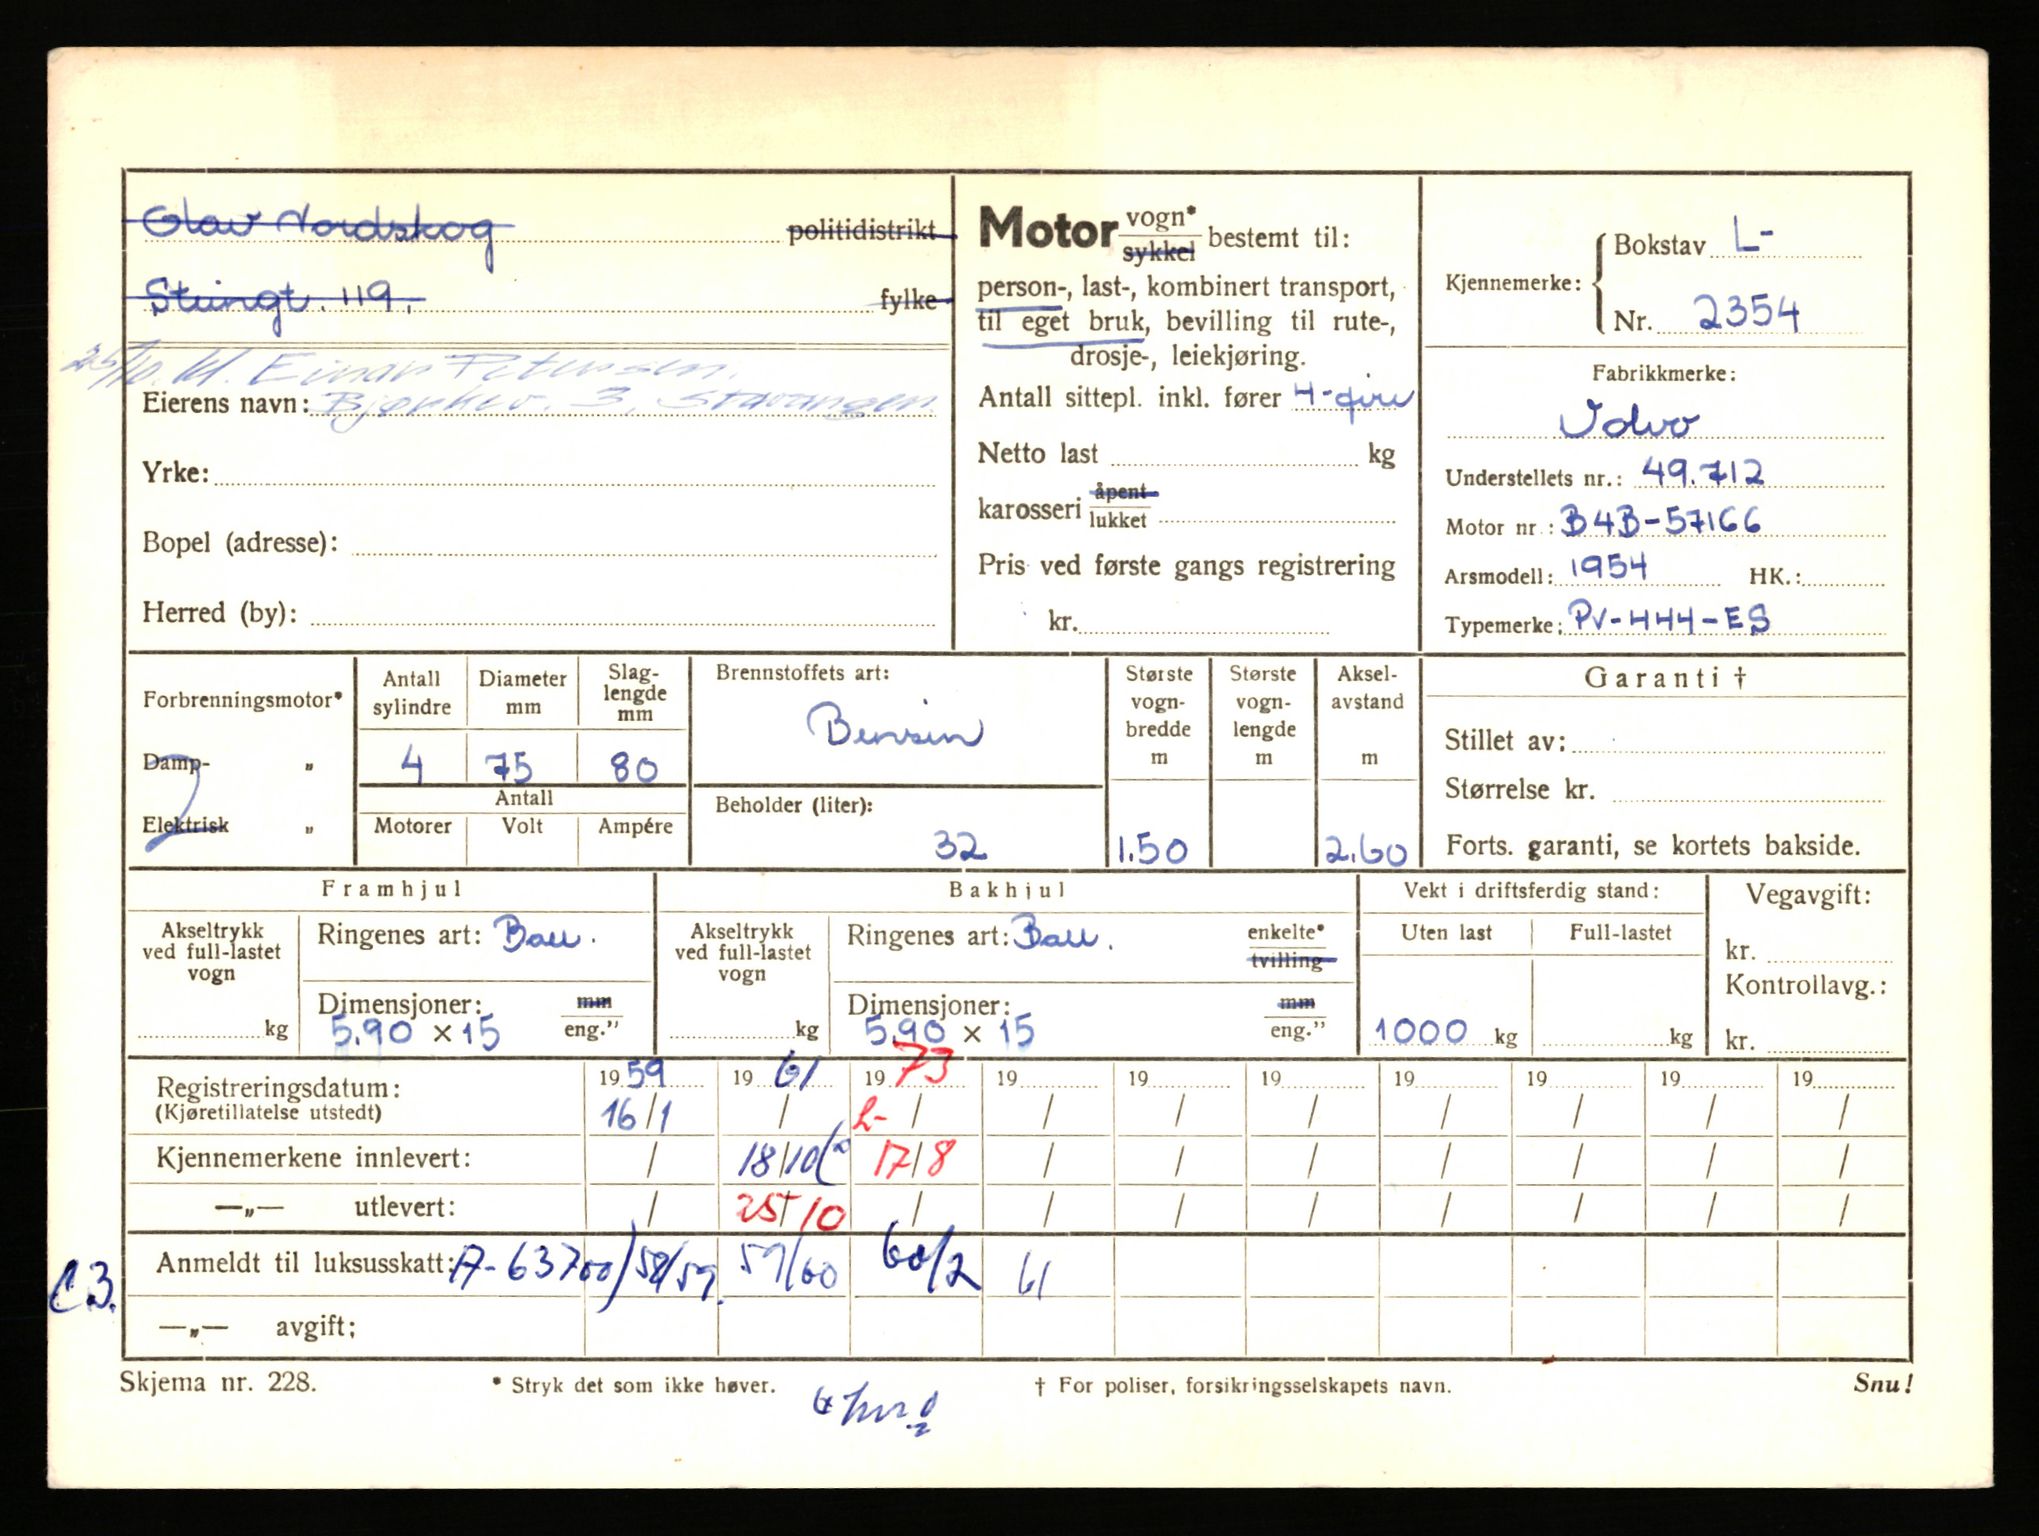 Olav Nordskog politidistrikt
Steingt. 119. fylke
25/10. 61. Einar Petersen.
Eierens navn: Bjørkev. 3, Stavanger
Yrke:
Bopel (adresse):
Herred (by):
Motor vogn* sykkel bestemt til:
person-, last-, kombinert transport,
til eget bruk, bevilling til rute-,
drosje-, leiekjøring.
Antall sittepl. inkl. fører 4-fire
Netto last kg
karosseri åpent lukket
Pris ved første gangs registrering
kr.
Kjennemerke: Bokstav L-
Nr. 2354
Fabrikkmerke:
Volvo
Understellets nr.: 49.712
Motor nr.: B4B-57166
Arsmodell: 1954 HK.:
Typemerke: PV-444-ES
Forbrenningsmotor*
Damp- "
Elektrisk "
Antall sylindre 4
Diameter mm 75
Slag-lengde mm 80
Antall
Motorer Volt Ampére
Brennstoffets art:
Bensin
Beholder (liter):
32
Største vogn-bredde m 1.50
Største vogn-lengde m
Aksel-avstand m 2.60
Garanti †
Stillet av:
Størrelse kr.
Forts. garanti, se kortets bakside.
Framhjul
Akseltrykk ved full-lastet vogn kg
Ringenes art: Ball.
Dimensjoner: mm eng."
5.90 × 15
Bakhjul
Akseltrykk ved full-lastet vogn kg
Ringenes art: Ball. enkelte* tvilling
Dimensjoner: mm eng."
5.90 × 15
Vekt i driftsferdig stand:
Uten last Full-lastet
1000 kg kg
Vegavgift:
kr.
Kontrollavg.:
kr.
Registreringsdatum: 1959 1961 1973 19 19 19 19 19 19 19
(Kjøretillatelse utstedt) 16/1 / L- / / / / / / / /
Kjennemerkene innlevert: / 18/10 17/8 / / / / / / /
—„— utlevert: / 25/10 / / / / / / / /
Anmeldt til luksusskatt: A-63700/58/59. 59/60 60/2 61
C3.
—„— avgift:
Skjema nr. 228. * Stryk det som ikke høver. † For poliser, forsikringsselskapets navn. Snu!